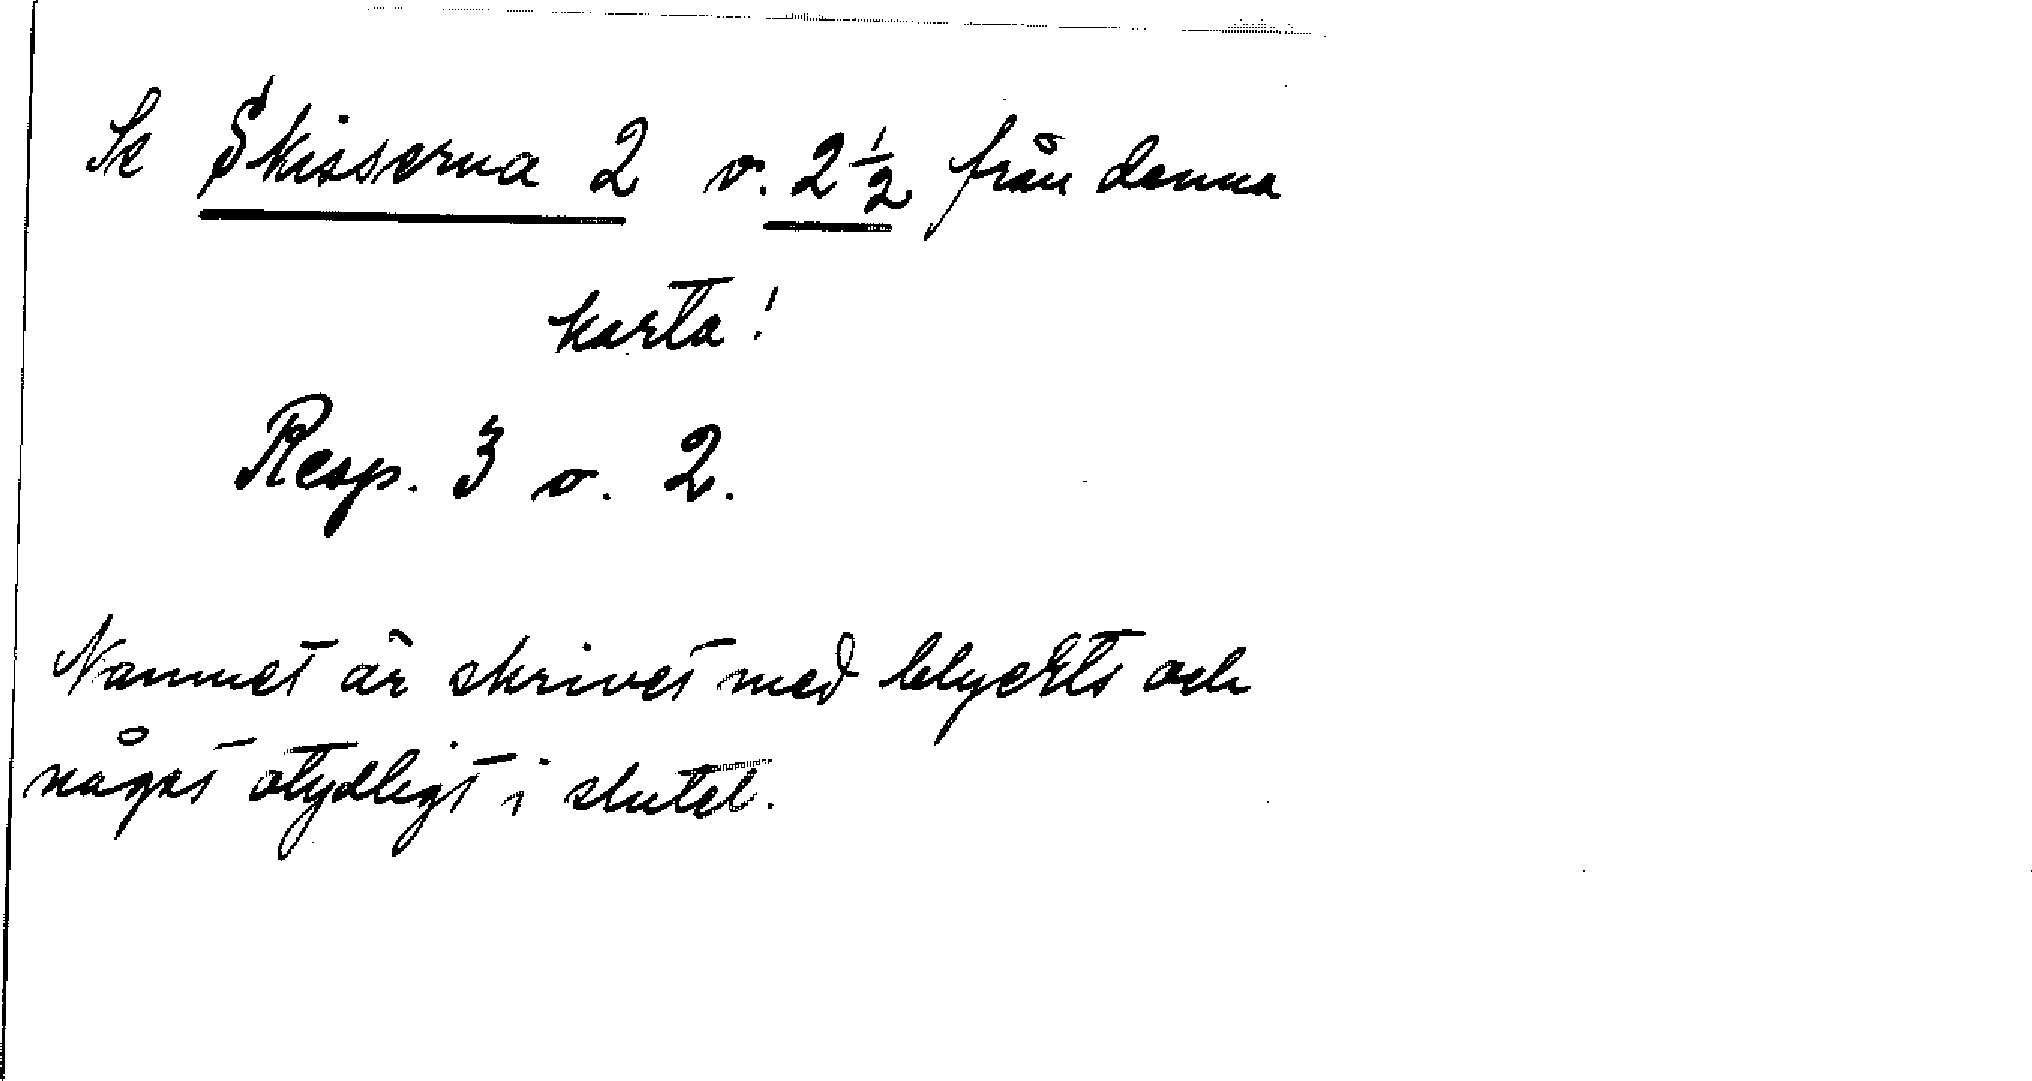 Se Skisserna 2 o. 2 1/2 från denna
karta!
Resp. 3 o. 2.
Namnet är skrivet med blyerts och
något otydligt i slutet.